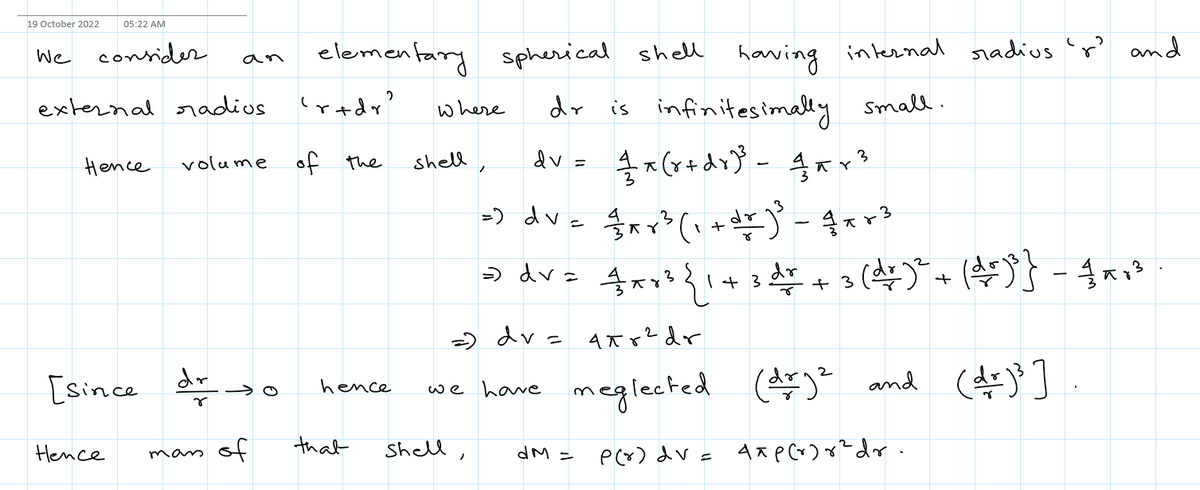 19 October 2022 05:22 AM
We consider an elementary spherical shell having internal radius 'r' and
external radius 'r+dr' where dr is infinitesimally small.
Hence volume of the shell, dv = 4/3 π(r+dr)³ - 4/3 πr³
=> dv = 4/3 πr³(1 + dr/r)³ - 4/3 πr³
=> dv = 4/3 πr³{1 + 3 dr/r + 3(dr/r)² + (dr/r)³} - 4/3 πr³.
=> dv = 4πr²dr
[Since dr/r → 0 hence we have neglected (dr/r)² and (dr/r)³].
Hence mass of that shell, dM = ρ(r) dv = 4πρ(r)r²dr.